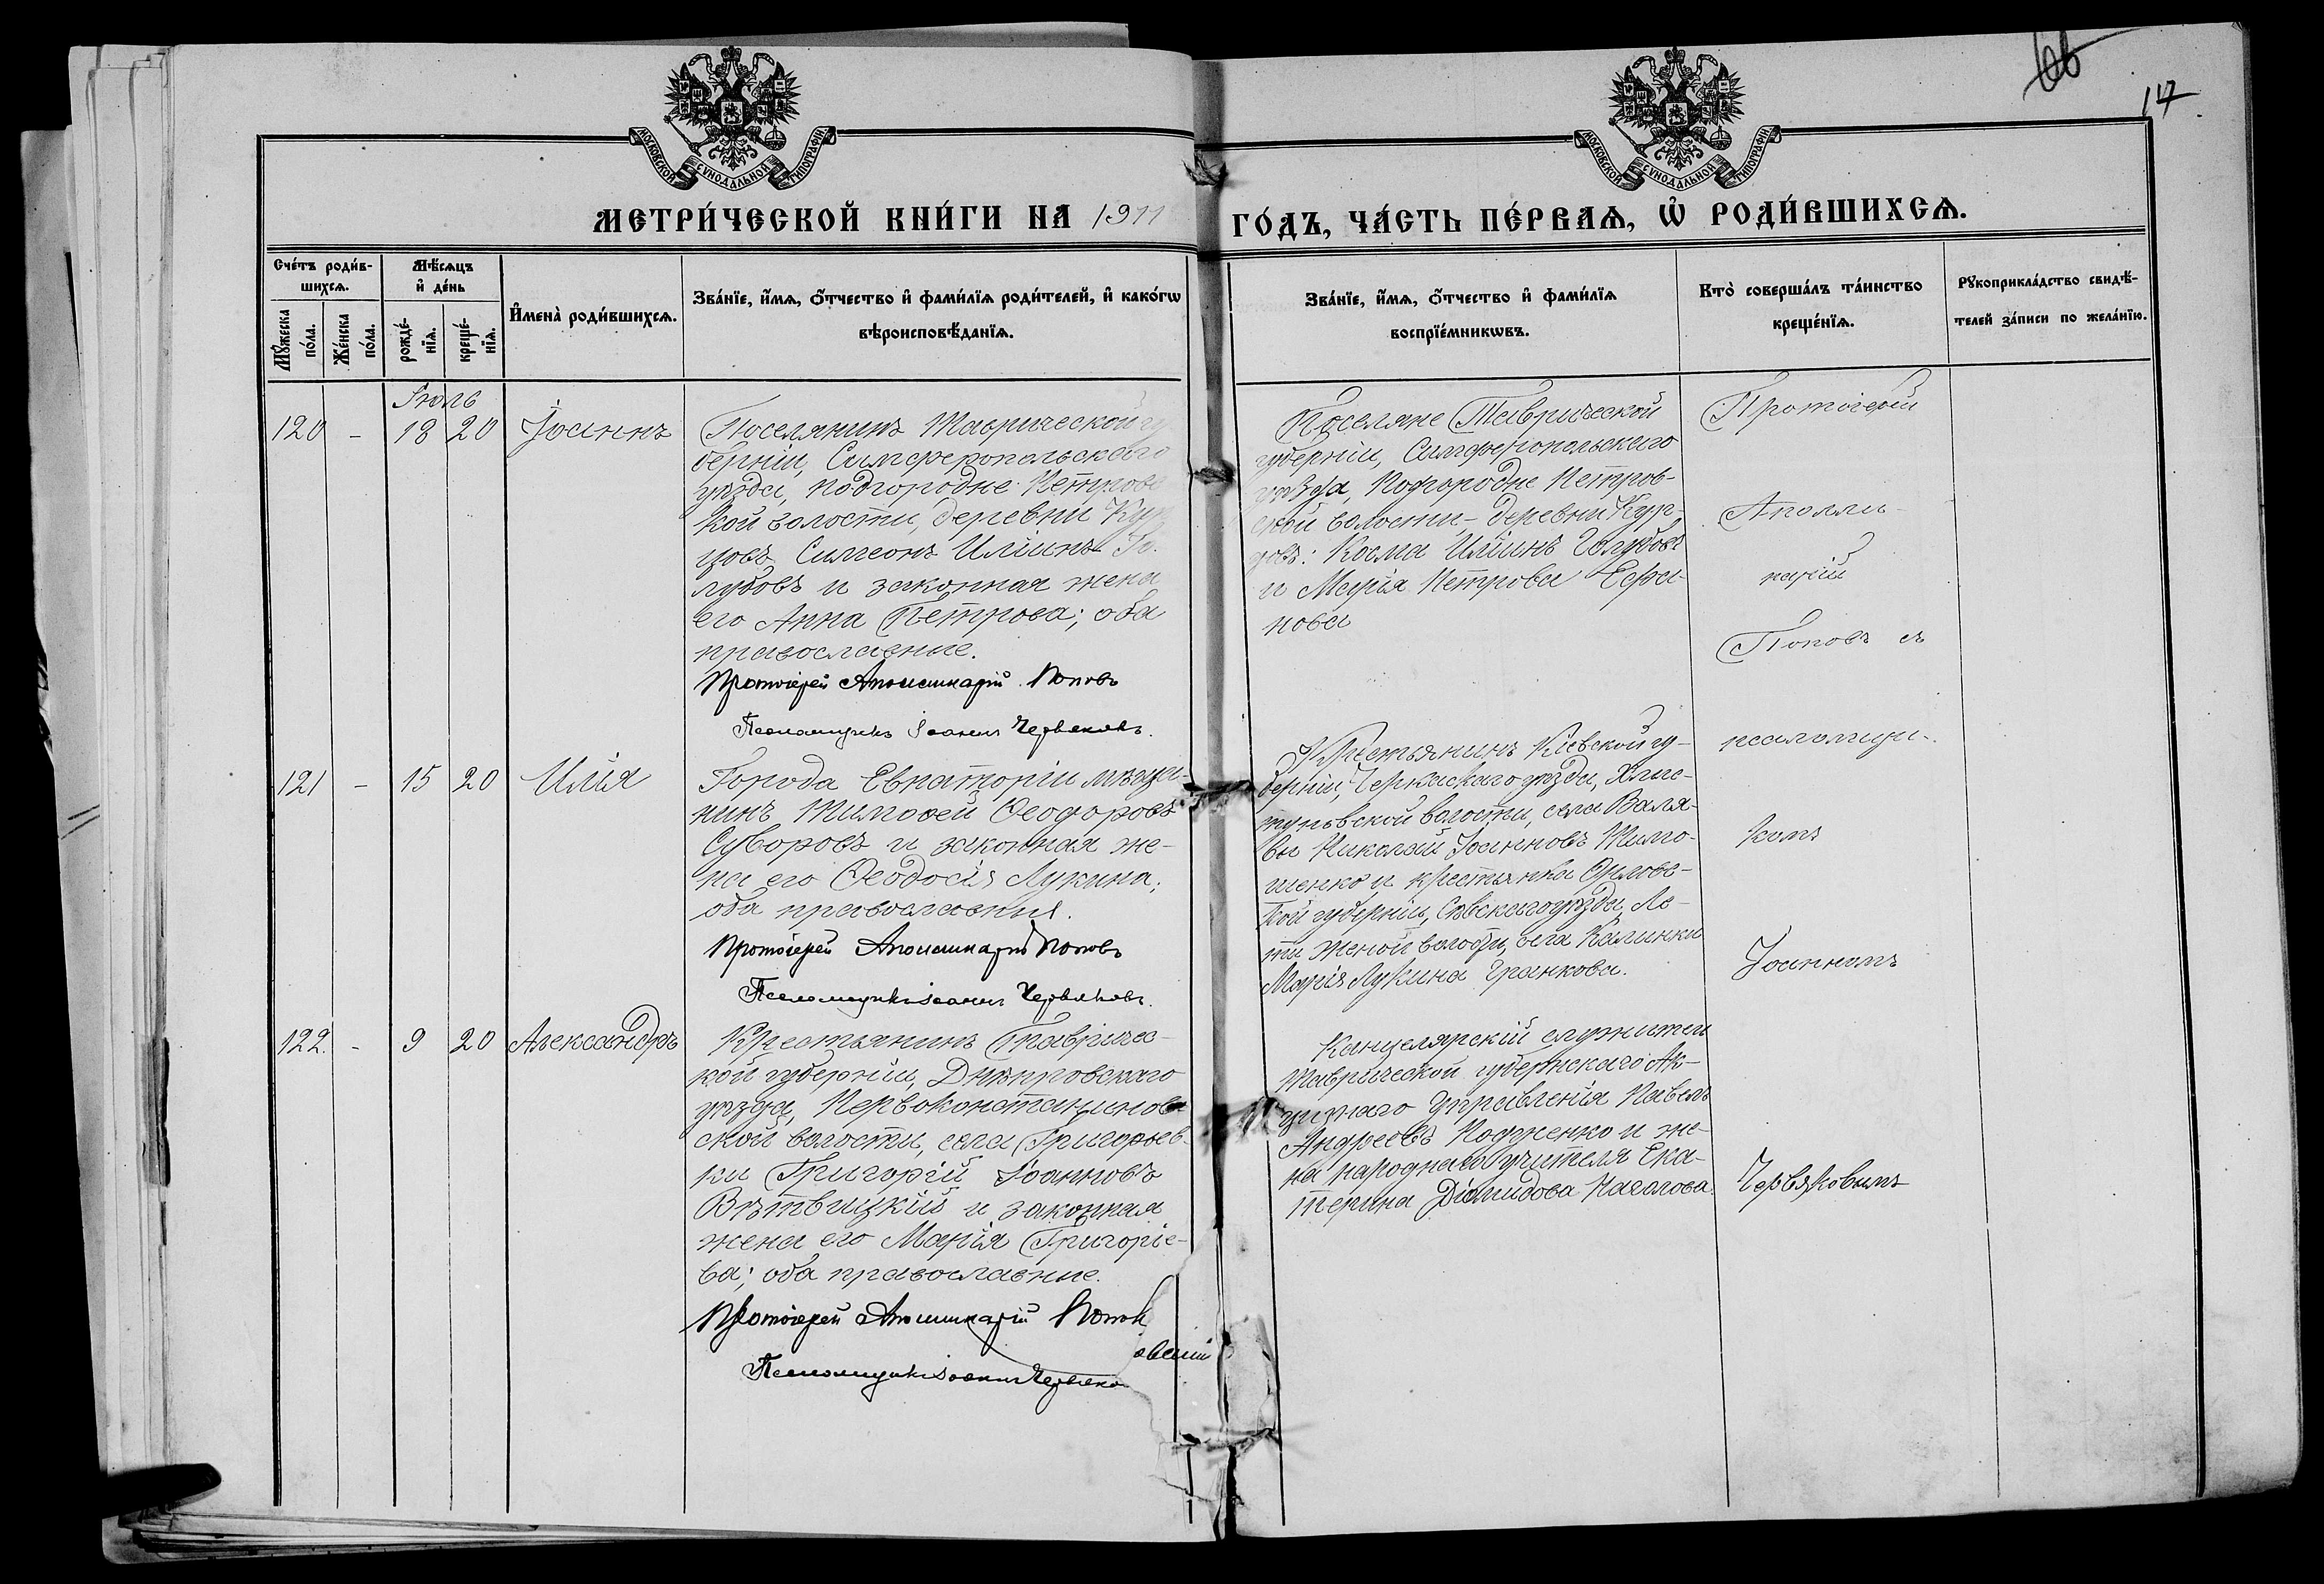 66
17
МОСКОВСКОЙ СѴНОДАЛЬНОЙ ТИПОГРАФІИ
МОСКОВСКОЙ СѴНОДАЛЬНОЙ ТИПОГРАФІИ
МЕТРИ́ЧЕСКОЙ КНИ́ГИ НА 1911 ГО́ДЪ, ЧА́СТЬ ПЕ́РВАѦ, Ѡ҆ РОДИ́ВШИХСѦ.
Сче́тъ роди́в-
шихсѧ.
Мꙋ́жеска
по́ла.
Же́нска
по́ла.
Мѣ́сѧцъ
и҆ де́нь
рожде́-
нїѧ.
креще́-
нїѧ.
И҆мена̀ роди́вшихсѧ.
Зва́нїе, и҆́мѧ, ѻ҆́тчество и҆ фами́лїѧ роди́телей, и҆ како́гѡ
вѣроисповѣ́данїѧ.
Зва́нїе, и҆́мѧ, ѻ҆́тчество и҆ фами́лїѧ
воспрїе́мникѡвъ.
Кто̀ соверша́лъ та́инство
креще́нїѧ.
Рꙋкоприкла́дство свидѣ́-
телей за́писи по жела́нїю.
Іюль
120 - 18 20 Іоаннъ
Поселянинъ Таврической гу
берніи, Симферопольскаго
уѣзда, Подгородне-Петровс
кой волости, деревни Кур
цовъ Симеонъ Иліинъ Го-
лубовъ и законная жена
его Анна Петрова; оба
православные.
Протоіерей Аполлинарій Поповъ
Псаломщикъ Іоаннъ Червяковъ.
Поселяне Таврической
губерніи, Симферопольскаго
уѣзда, Подгородне Петров-
ской волости - деревни Кур-
цовъ: Косма Иліинъ Голубовъ
и Марія Петрова Ефа-
нова
Протоіерей
Аполли-
нарій
Поповъ съ
псаломщи-
комъ
Іоанномъ
Червяковымъ
121 - 15 20 Илія
Города Евпаторіи мѣща-
нинъ Тимоѳей Ѳеодоровъ
Суворовъ и законная же-
на его Ѳеодосія Лукина;
оба православные.
Протоіерей Аполлинарій Поповъ
Псаломщикъ Іоаннъ Червяковъ.
Крестьянинъ Кіевской гу-
берніи, Черкаскаго уѣзда, Хлис-
туновской волости, села Валя-
вы Николай Іоанновъ Тимо-
шенко и крестьянка Орловс-
кой губерніи, Сѣвскаго уѣзда,
волости, села Калинки
Марія Лукина Гранкова.
122. - 9 20 Александръ
Крестьянинъ Тавричес-
кой губерніи, Днѣпровскаго
уѣзда, Первоконстантинов-
ской волости, села Григорьев-
ки Григорій Іоанновъ
Вѣтвицкій и законная
жена его Марія Григоріе-
ва; оба православные.
Протоіерей Аполлинарій Попов
Псаломщикъ Іоаннъ Червяко
Канцелярскій служитель
Таврической губернскаго Ак-
цизнаго Управленія Павелъ
Андреевъ Подженко и же-
на народнаго учителя Ека-
терина Діомидова